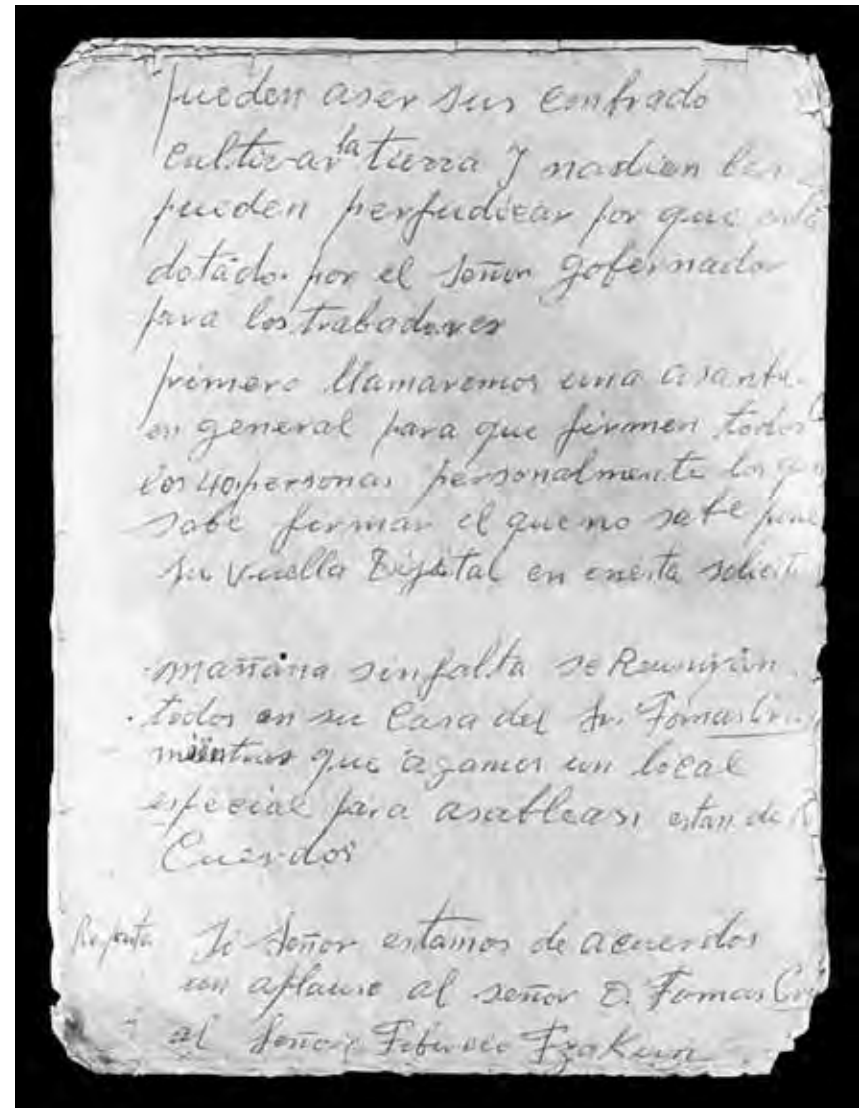 pueden aser sus contrado
cultivar la tierra y nadien les
pueden perjudicar por que está
dotado por el señor gofernador
para los trabadores
primero llamaremos una
en general para que firmen todos
los 40 personas personalmente los que
sabe firmar el que no sabe pone
su vuella Digital en
mañana sin falta se Reunirán
todos en su casa del Sr. Tomas
mientras que agamos un local
especial para asableas, estan de
Cuerdos
Si Señor estamos de acuerdos
un aplauso al señor D. Tomas
al Señor Tiburcio